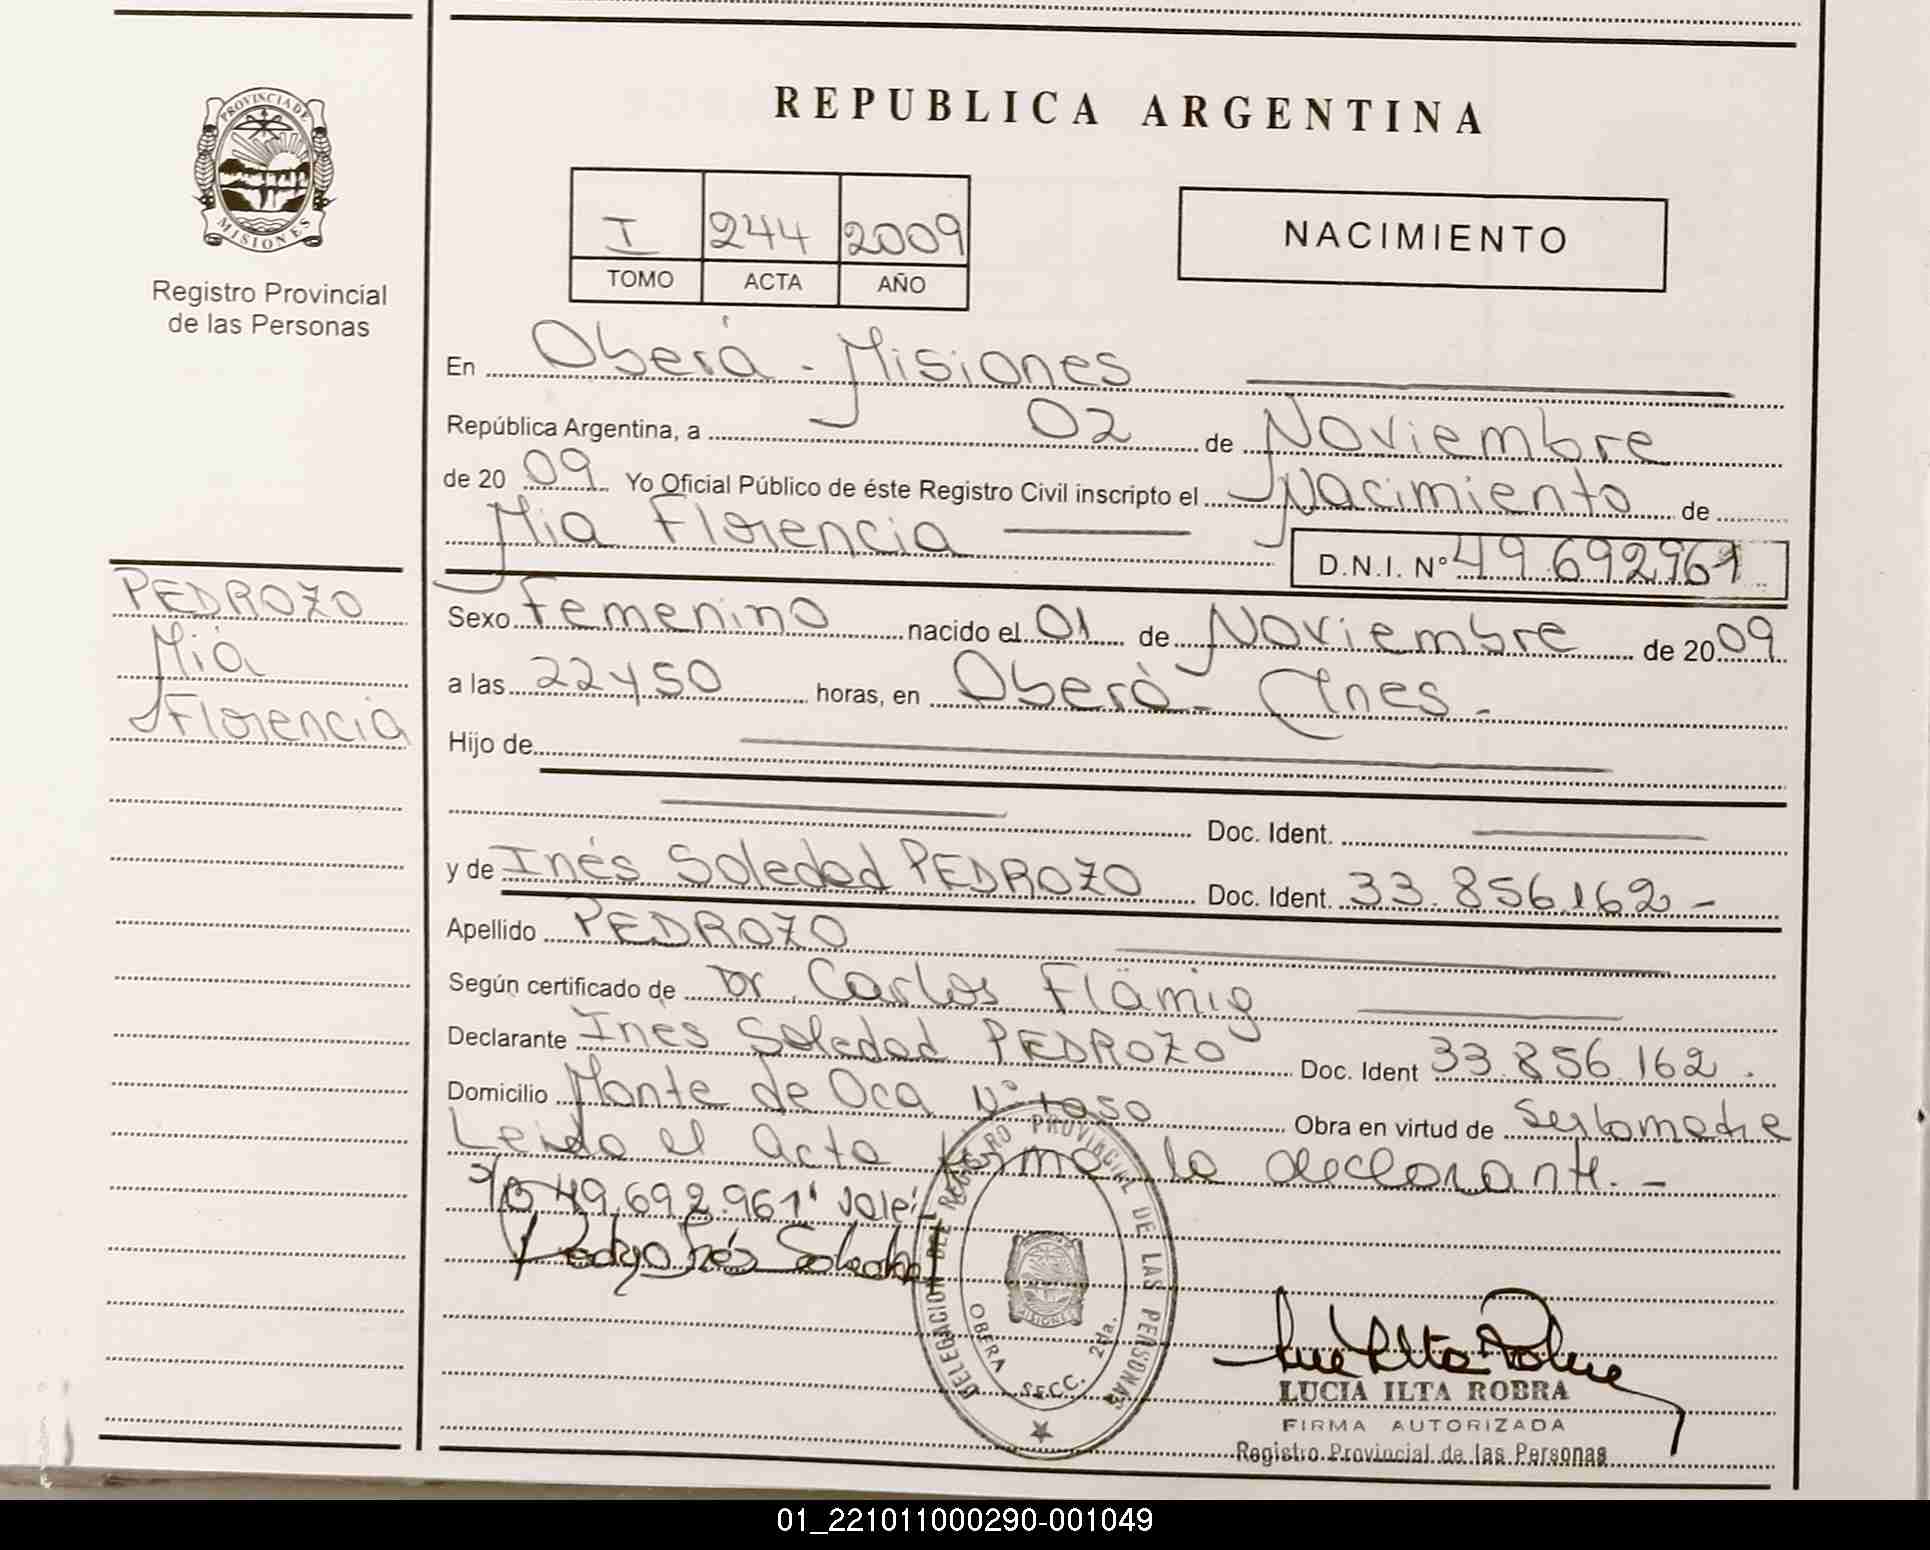 REPUBLICA ARGENTINA
PROVINCIA DE
MISIONES
Registro Provincial
de las Personas
I 244 2009
TOMO ACTA AÑO
NACIMIENTO
En Oberá - Misiones
República Argentina, a 02 de Noviembre
de 20 09 Yo Oficial Público de éste Registro Civil inscripto el Nacimiento de
Mia Florencia D.N.I. Nº 49.692961
PEDROZO
Mia
Florencia
Sexo femenino nacido el 01 de Noviembre de 20 09
a las 22y50 horas, en Oberá -
Hijo de
Doc. Ident.
y de Inés Soledad PEDROZO Doc. Ident. 33.856.162 -
Apellido PEDROZO
Según certificado de Dr. Carlos Flämig
Declarante Inés Soledad PEDROZO Doc. Ident 33.856.162.
Domicilio Monte de Oca Nº Obra en virtud de
Leida el acta firma la declarante. -
49.692.961 "Vale"
Soledad
DELEGACION DEL REGISTRO PROVINCIAL DE LAS PERSONAS
MISIONES
OBERA SECC. 2da.
LUCIA ILTA ROBRA
FIRMA AUTORIZADA
Registro Provincial de las Personas
01_221011000290-001049